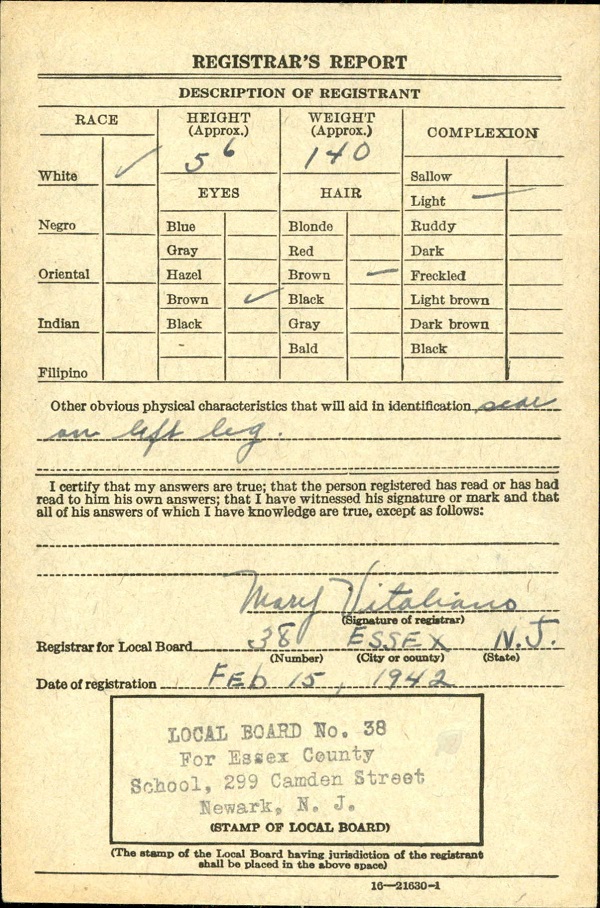 REGISTRAR'S REPORT
DESCRIPTION OF REGISTRANT
RACE
HEIGHT
(Approx.)
WEIGHT
(Approx.)
COMPLEXION
5 6
140
White ✓
Sallow
EYES
HAIR
Light —
Negro
Blue
Blonde
Ruddy
Gray
Red
Dark
Oriental
Hazel
Brown —
Freckled
Brown ✓
Black
Light brown
Indian
Black
Gray
Dark brown
Bald
Black
Filipino
Other obvious physical characteristics that will aid in identification scar
on left leg.
I certify that my answers are true; that the person registered has read or has had
read to him his own answers; that I have witnessed his signature or mark and that
all of his answers of which I have knowledge are true, except as follows:
Mary Vitaliano
(Signature of registrar)
Registrar for Local Board 38 ESSEX N.J.
(Number) (City or county) (State)
Date of registration FEb 15, 1942
LOCAL BOARD No. 38
For Essex County
School, 299 Camden Street
Newark, N. J.
(STAMP OF LOCAL BOARD)
(The stamp of the Local Board having jurisdiction of the registrant
shall be placed in the above space)
16—21630-1